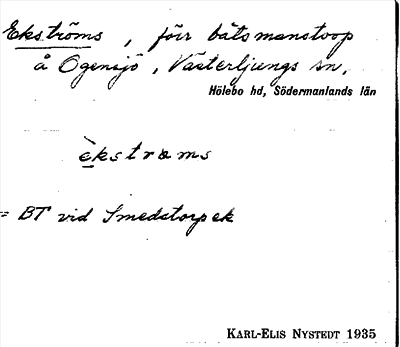 Ekströms, förr båtsmanstorp
å Ögensjö, Västerljungs sn,
Hölebo hd, Södermanlands län
èkstroms
= BT vid Smedstorp ek
KARL-ELIS NYSTEDT 1935